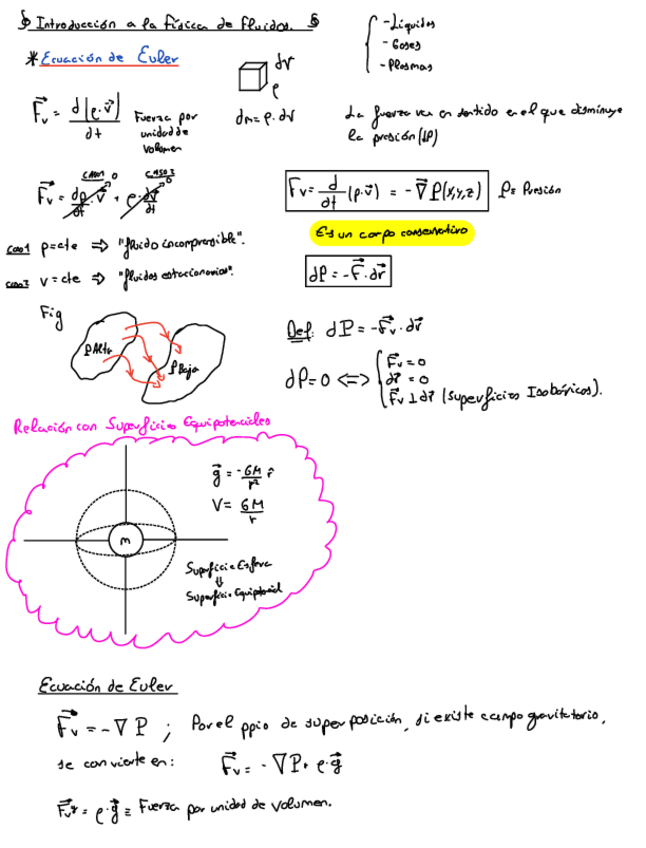 § Introducción a la Física de Fluidos. §
- Líquidos
- Gases
- Plasmas
* Ecuación de Euler
dV
ρ
dm = ρ · dV
F⃗v = d(ρ·v⃗)/dt
Fuerza por unidad de volumen
La fuerza va en sentido en el que disminuye
la presión (↓P)
caso 1 0
caso 2 0
F⃗v = dρ/dt · v⃗ + ρ · dv⃗/dt
F⃗v = d/dt (ρ·v⃗) = -∇⃗P(x,y,z)
P = Presión
Es un campo conservativo
caso 1 ρ = cte ⇒ "fluido incompresible".
caso 2 v = cte ⇒ "fluidos estacionarios".
dP = -F⃗·dr⃗
Fig
P Alta
P Baja
Def: dP = -F⃗v · dr⃗
dP = 0 <=>
F⃗v = 0
dr⃗ = 0
F⃗v ⊥ dr⃗ (Superficies Isobáricas).
Relación con Superficies Equipotenciales
g⃗ = -GM/r² r̂
V = GM/r
m
Superficie Esfera
⇓
Superficie Equipotencial
Ecuación de Euler
F⃗v = -∇P ; Por el ppio de superposición, si existe campo gravitatorio,
se convierte en: F⃗v = -∇P + ρ·g⃗
F⃗v* = ρ·g⃗ ≡ Fuerza por unidad de volumen.